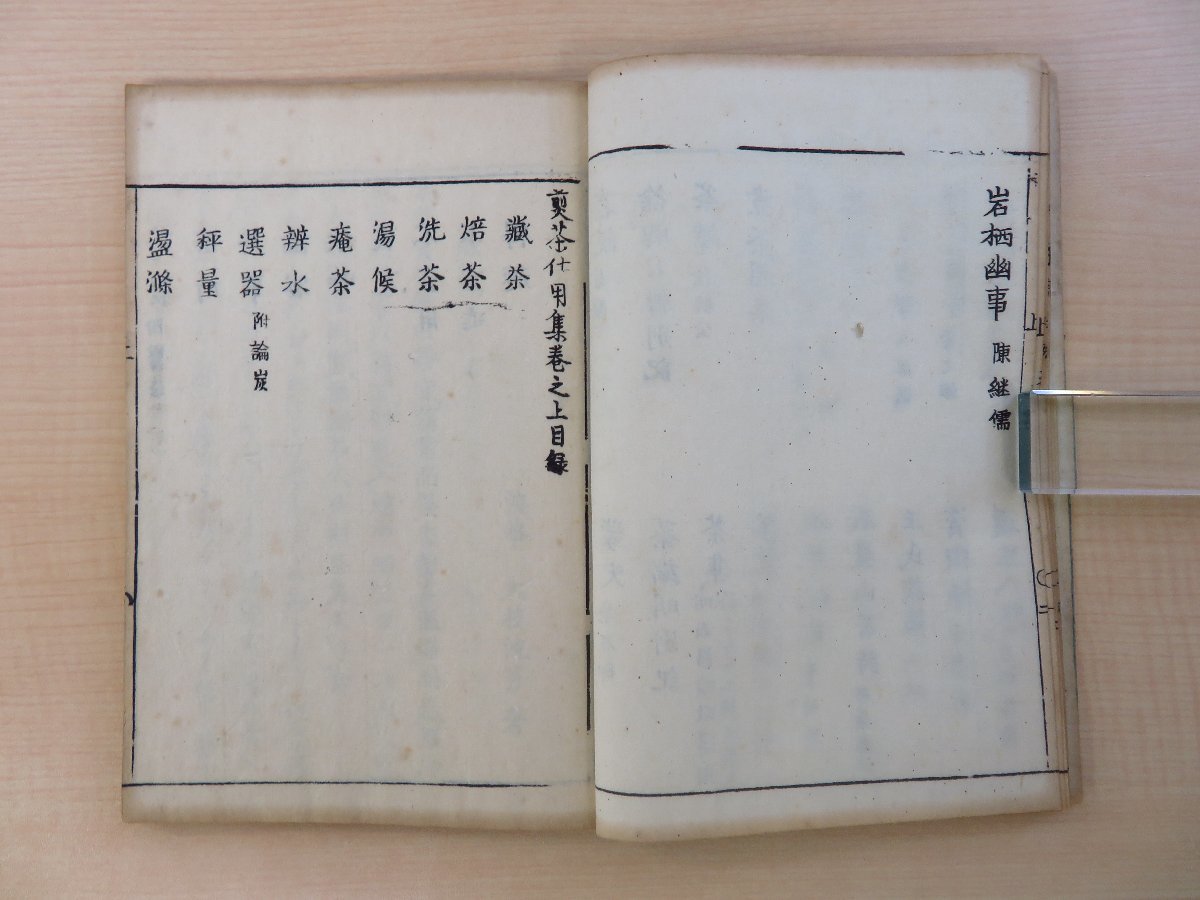 岩栖幽事 陳継儒
煎茶仕用集巻之上目録
藏茶
焙茶
洗茶
湯候
痷茶
辨水
選器 附論炭
秤量
盪滌